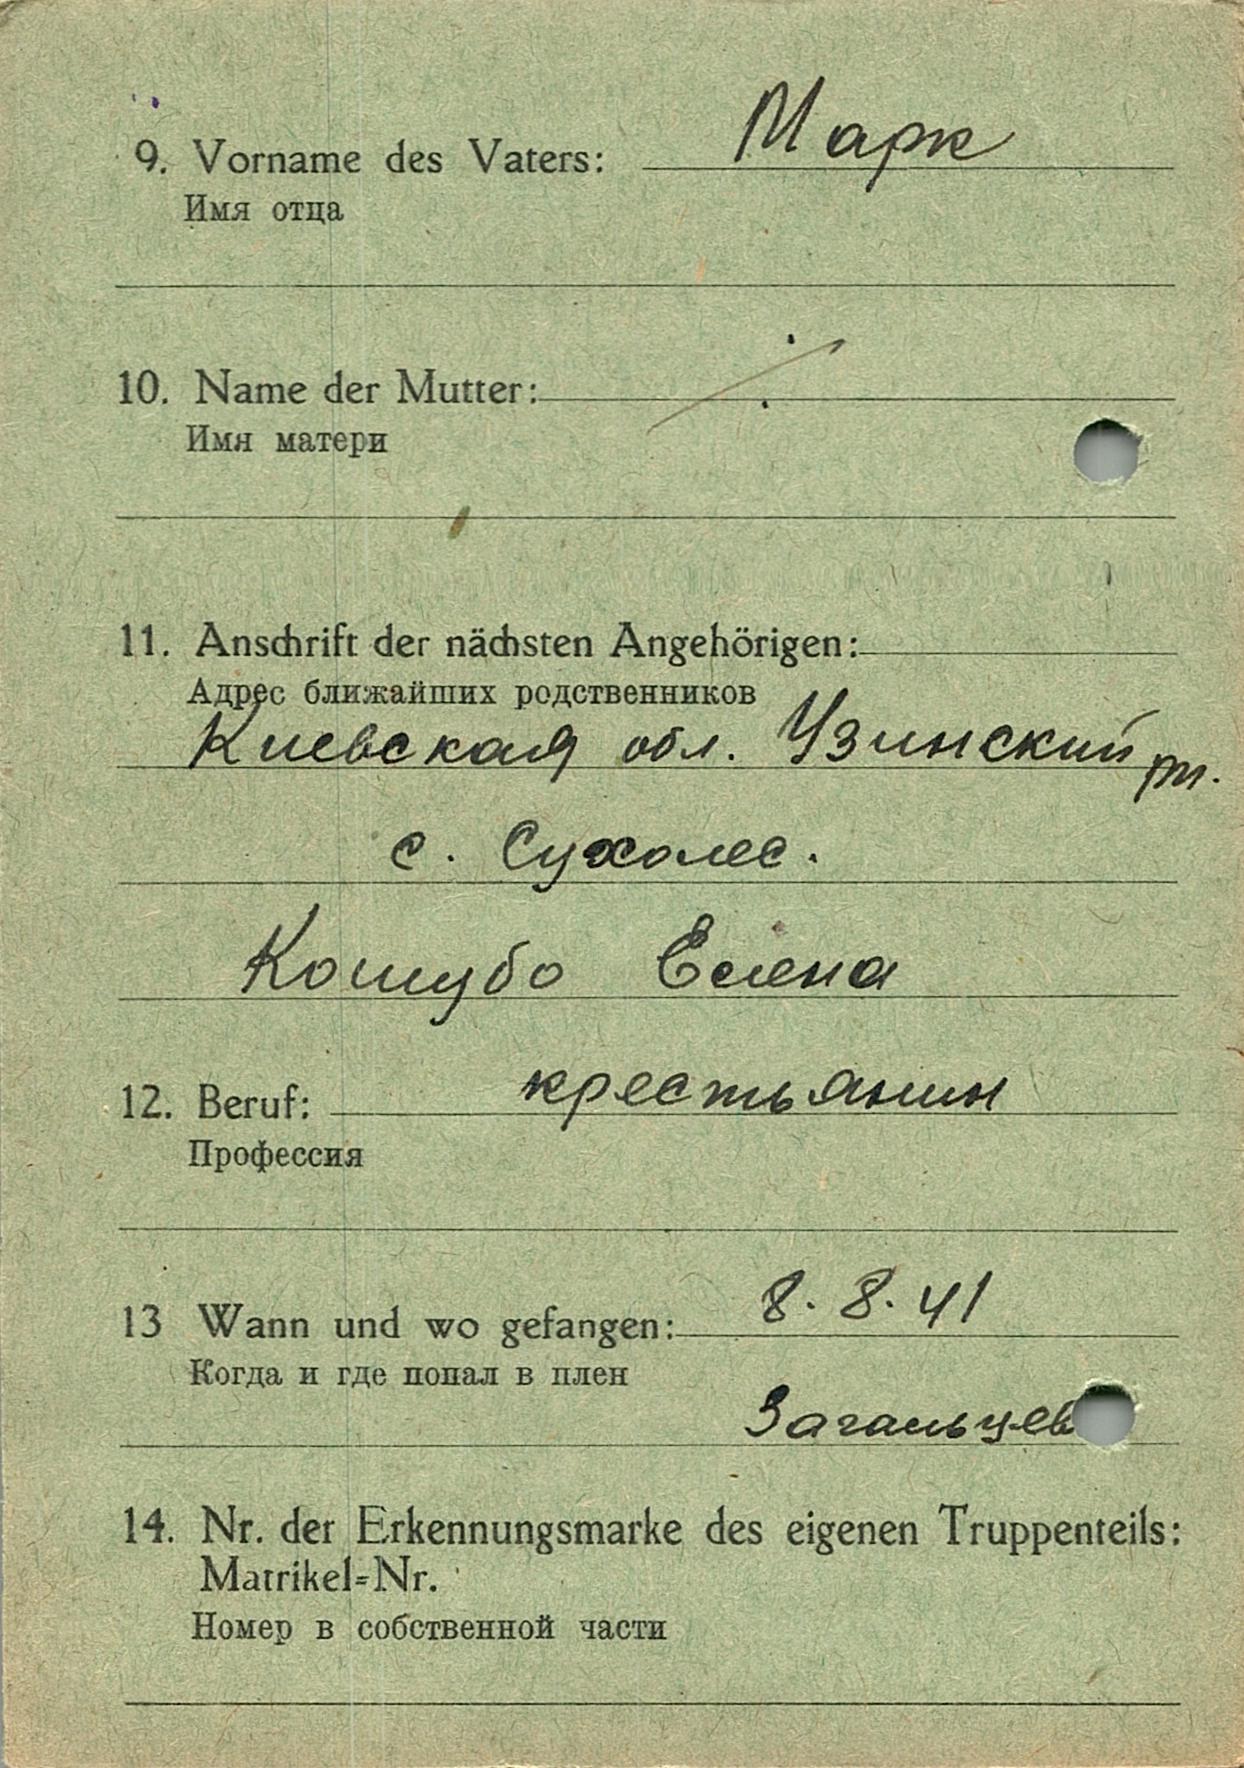 9. Vorname des Vaters: Марк
Имя отца
10. Name der Mutter:
Имя матери
11. Anschrift der nächsten Angehörigen:
Адрес ближайших родственников
Киевская обл. Узинский рн.
с. Сухолес.
Кошубо Елена
12. Beruf: крестьянин
Профессия
13 Wann und wo gefangen: 8. 8. 41
Когда и где попал в плен
Загальцев
14. Nr. der Erkennungsmarke des eigenen Truppenteils:
Matrikel=Nr.
Номер в собственной части